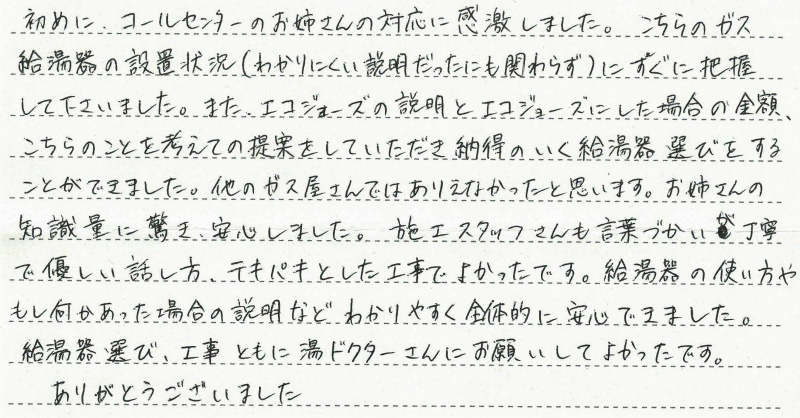 初めに、コールセンターのお姉さんの対応に感激しました。こちらのガス
給湯器の設置状況(わかりにくい説明だったにも関わらず)にすぐに把握
して下さいました。また、エコジョーズの説明とエコジョーズにした場合の金額、
こちらのことを考えての提案をしていただき納得のいく給湯器選びをする
ことができました。他のガス屋さんではありえなかったと思います。お姉さんの
知識量に驚き、安心しました。施工スタッフさんも言葉づかいが丁寧
で優しい話し方、テキパキとした工事でよかったです。給湯器の使い方や
もし何かあった場合の説明などわかりやすく全体的に安心できました。
給湯器選び、工事ともに湯ドクターさんにお願いしてよかったです。
ありがとうございました